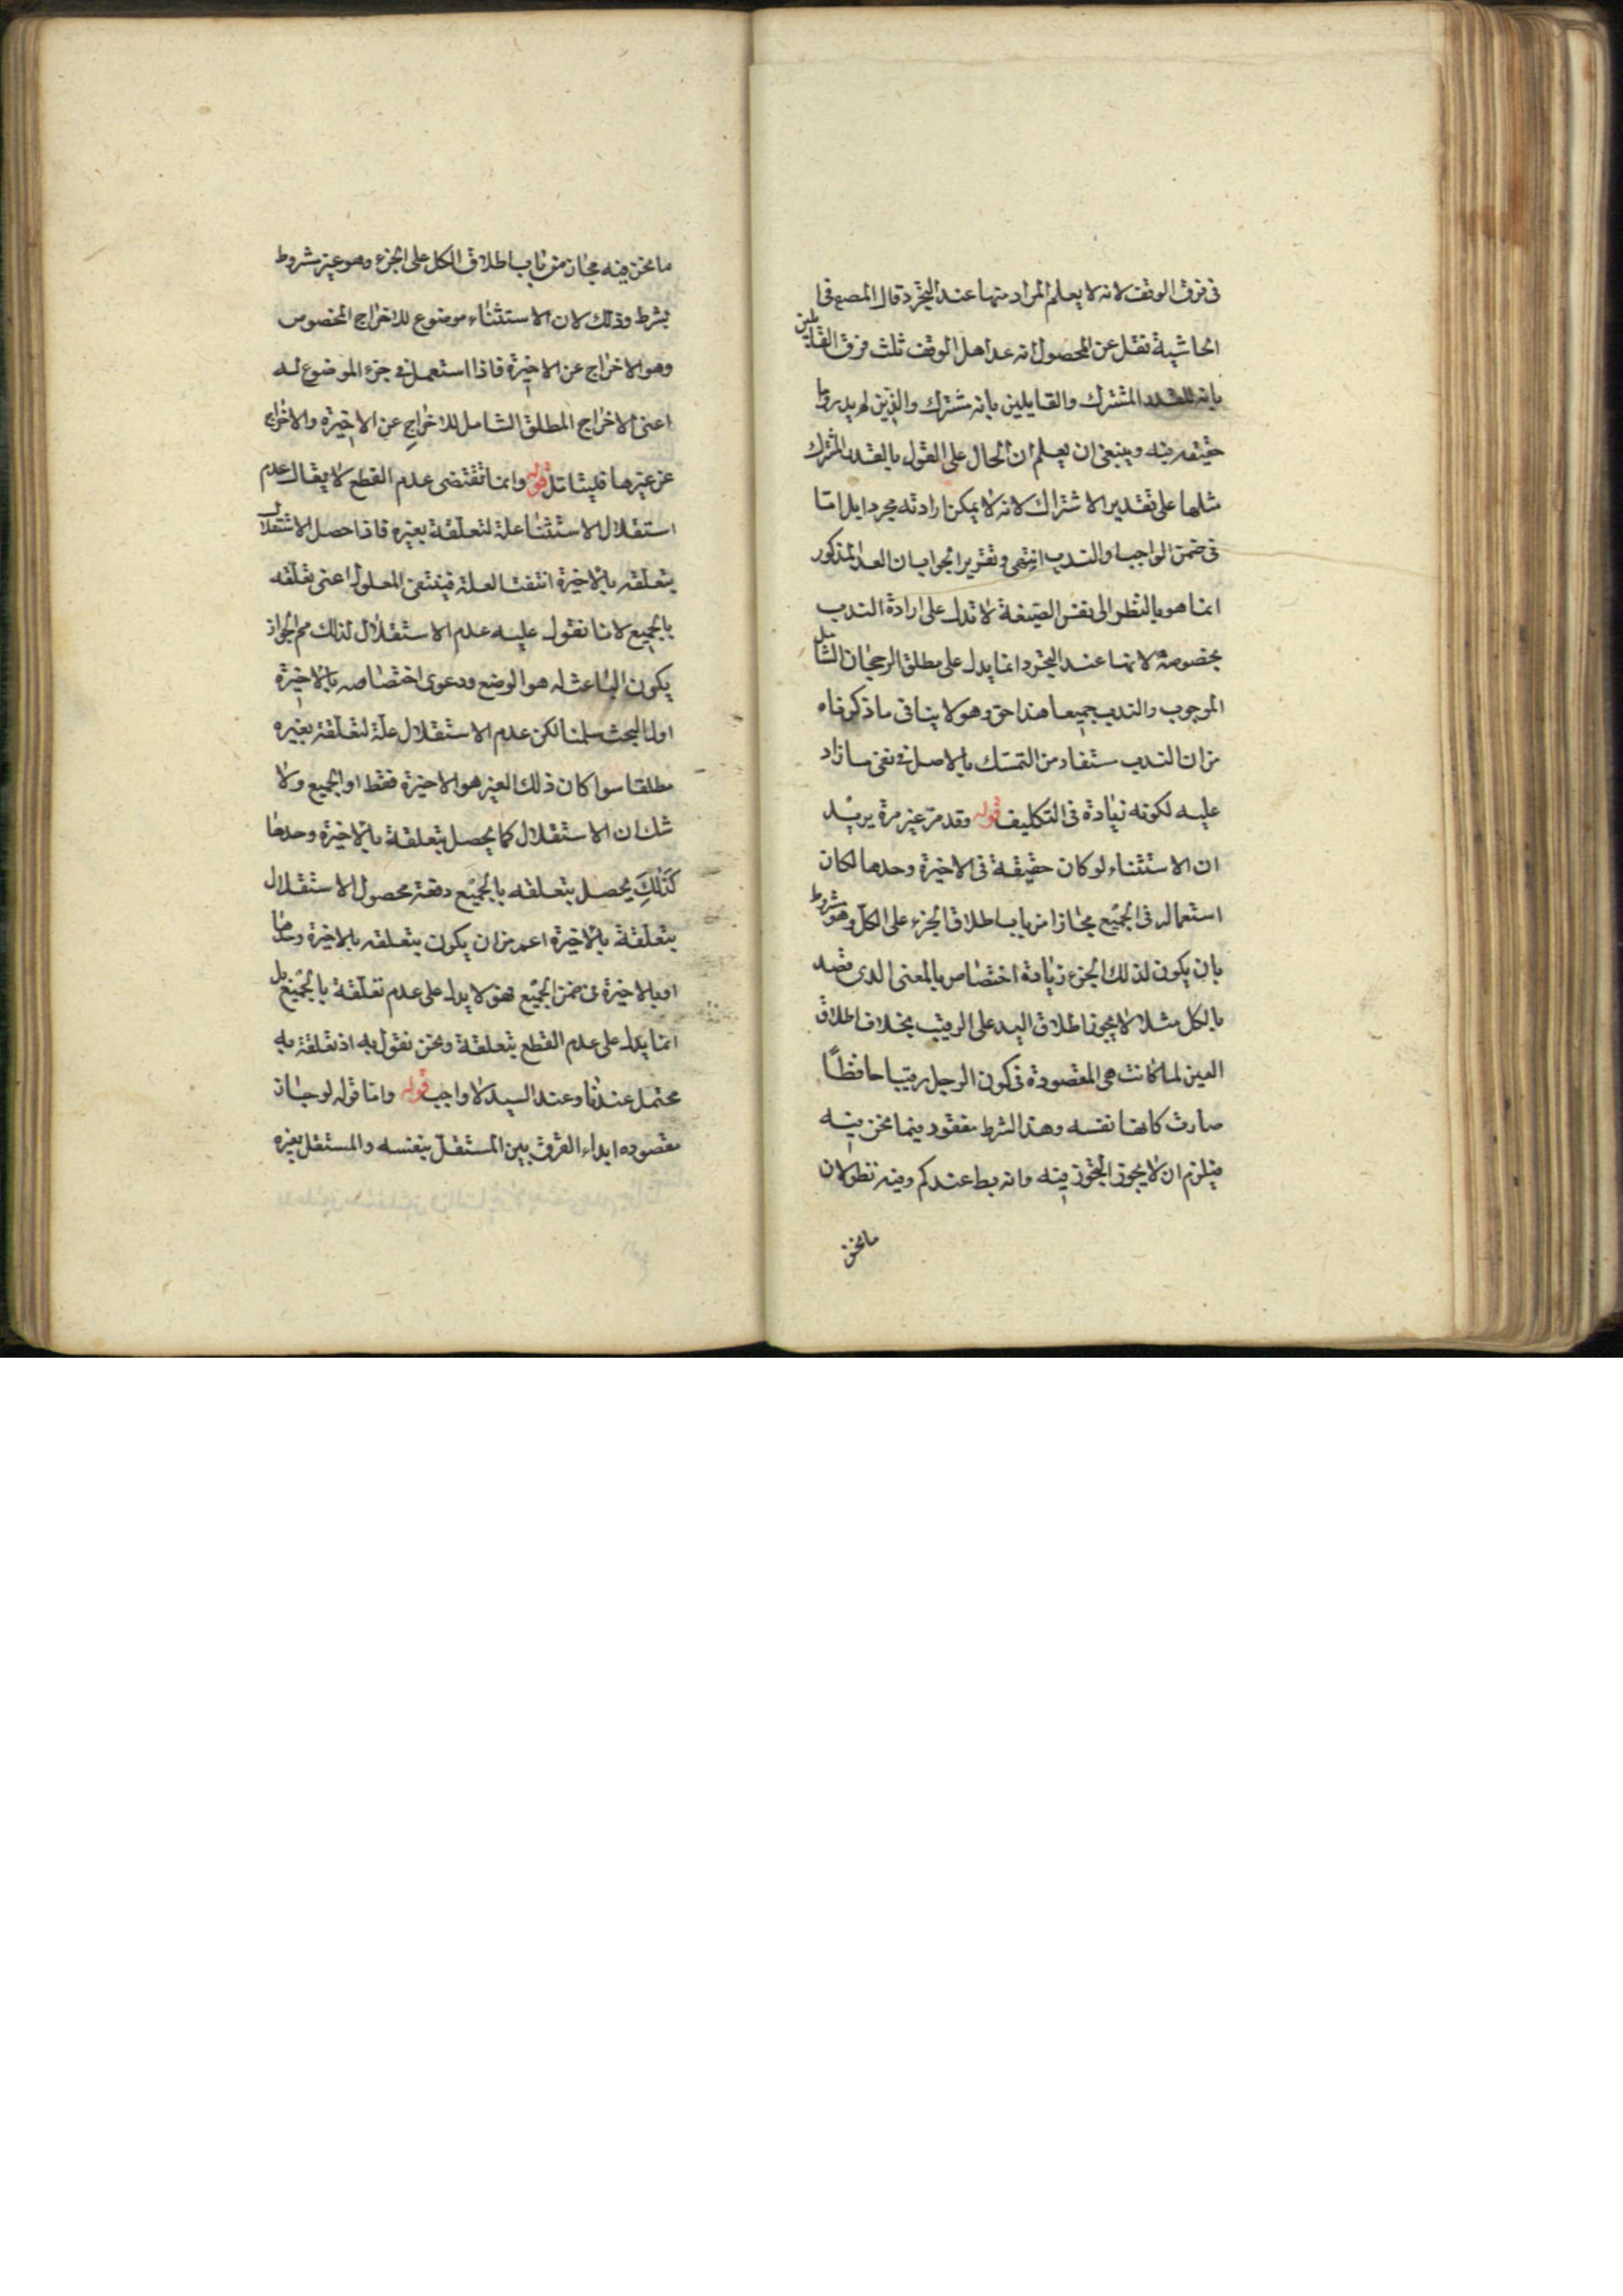 فى فرق الوقف لانه لا يعلم المراد منها عند التجرد قال المصه فى
الحاشية نقل عن المحصول انه عد اهل الوقف ثلث فرق القايلين
بانه للقدر المشترك والقايلين بانه مشترك والذين لم يدروا ما
حقيقه فيه وينبغى ان يعلم ان الحال على القول بالقدر المشترك
مثلها على تقدير الاشتراك لانه لا يمكن ارادته مجردا بل اما
فى ضمن الواجب او الندب انتهى وتقرير الجواب ان العد المذكور
انما هو بالنظر الى نفس الصيغة لا تدل على ارادة الندب
بخصوصه لانها عند التجرد انما يدل على مطلق الرجحان الشامل
للوجوب والندب جميعا هذا حق وهو لا ينافى ما ذكرناه
من ان الندب ستفاد من التمسك بالاصل فى نفى ما زاد
عليه لكونه زيادة فى التكليف قوله وقد مر غير مرة يريد
ان الاستثناء لو كان حقيقة فى الاخيرة وحدها لكان
استعماله فى الجميع مجازا من باب اطلاق الجزء على الكل وهو مشروط
بان يكون لذلك الجزء زيادة اختصاص بالمعنى الذى قصد
بالكل مثلا لا يجوز اطلاق اليد على الرقيب بخلاف اطلاق
العين لما كانت هى المقصودة فى كون الرجل رقيبا حافظًا
صارت كانها نفسه وهذا الشرط مفقود فيما نحن فيه
فيلزم ان لا يجوز التجوز فيه وانه بط عندكم وفيه نظر لان
ما نحن
ما نحن فيه مجاز من باب اطلاق الكل على الجزء وهو غير مشروط
بشرط وذلك لان الاستثناء موضوع للاخراج المخصوص
وهو الاخراج عن الاخيرة فاذا استعمل فى جزء الموضوع له
اعنى الاخراج المطلق الشامل للاخراج عن الاخيرة والاخراج
عن غيرها فليتامل قوله وانما تقتضى عدم القطع لا يقال عدم
استقلال الاستثناء علة لتعلقه بغيره فاذا حصل الاستقلال
بتعلقه بالاخيرة انتفت العلة فينتفى المعلول اعنى تعلقه
بالجميع لانا نقول عليه عدم الاستقلال لذلك مم لجواز
يكون الباعث له هو الوضع ودعوى اختصاصه بالاخيرة
اول البحث سلمنا لكن عدم الاستقلال علة لتعلقه بغيره
مطلقا سوا كان ذلك الغير هو الاخيرة فقط او الجميع ولا
شك ان الاستقلال كما يحصل بتعلقه بالاخيرة وحدها
كذلك يحصل بتعلقه بالجميع دفعة محصول الاستقلال
بتعلقة بالاخيرة اعم من ان يكون بتعلقه بالاخيرة وحدها
او بالاخيرة فى ضمن الجميع فهو لا يدل على عدم تعلقة بالجميع بل
انما يدل على عدم القطع بتعلقة ونحن نقول به اذ تعلقه به
محتمل عندنا وعند السيد لا واجب قوله واما قوله لو جاز
مقصوده ابداء الفرق بين المستقل بنفسه والمستقل بغيره